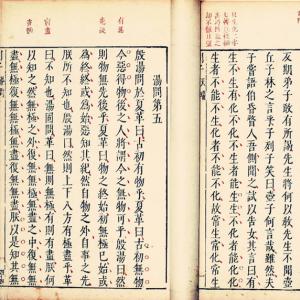 友期弟子敢有所謁先生將何以教先生不聞壺
丘子林之言乎子列子笑曰壺子何言哉雖然夫
子嘗語伯昏瞀人吾側聞之試以告女其言曰有
生不生有化不化不生者能生生不化者能化化
生者不能不生化者不能不化故常生常化
湯問第五
殷湯問於夏革曰古初有物乎夏革曰古初無物
今惡得物後之人將謂今之無物可乎殷湯曰然
則物無先後乎夏革曰物之終始初無極已始或
為終終或為始惡知其紀然自物之外自事之先
朕所不知也殷湯曰然則上下八方有極盡乎革
曰不知也湯固問革曰無則無極有則有盡朕何
以知之然無極之外復無無極無盡之中復無無
盡無極復無無極無盡復無無盡朕以是知其無